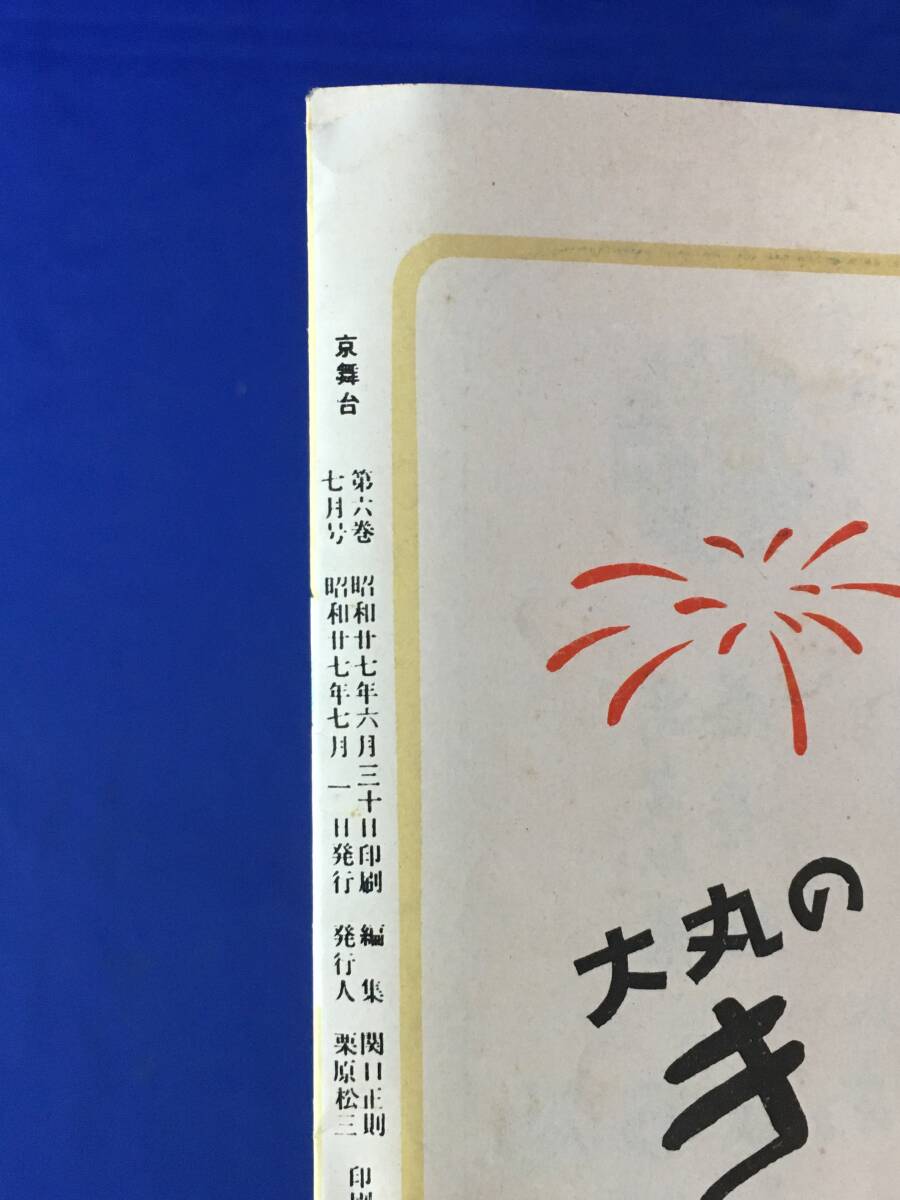 京舞台
第六巻
七月号
昭和廿七年六月三十日印刷
昭和廿七年七月一日発行
編集 関口正則
発行人 栗原松三
印刷
大丸の
き